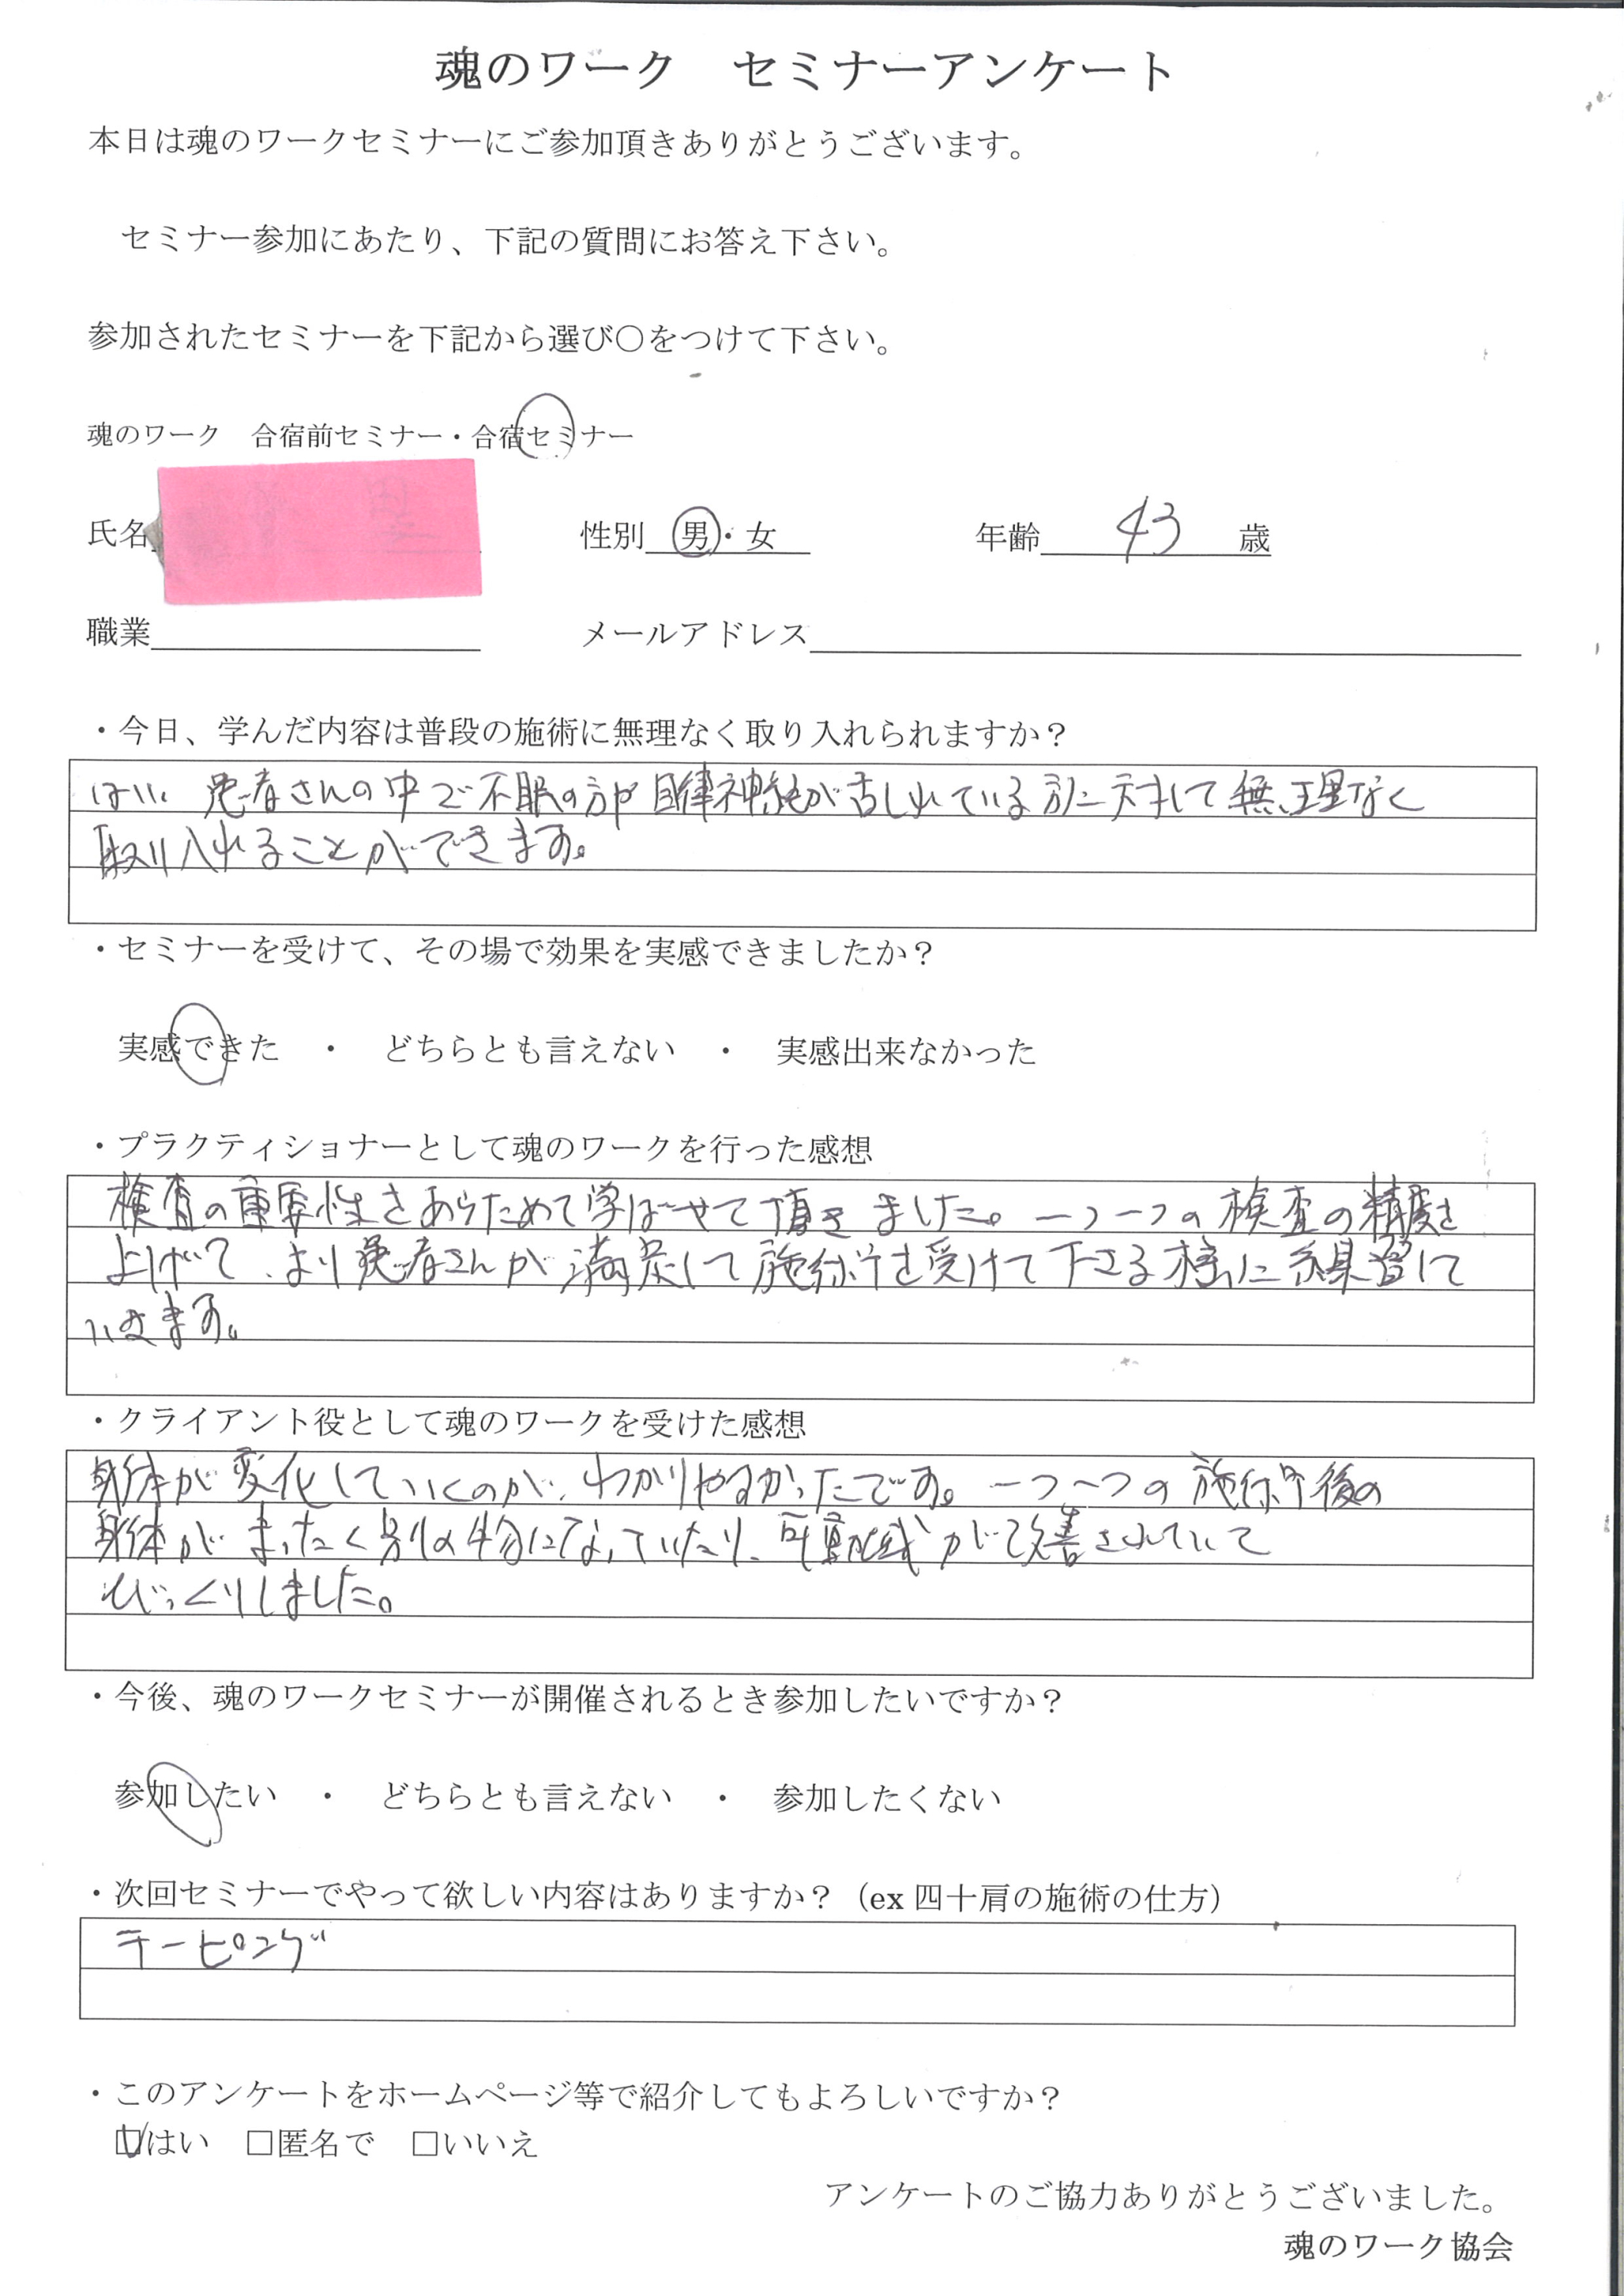 魂のワーク　セミナーアンケート
本日は魂のワークセミナーにご参加頂きありがとうございます。
セミナー参加にあたり、下記の質問にお答え下さい。
参加されたセミナーを下記から選び〇をつけて下さい。
魂のワーク　合宿前セミナー・合宿セミナー
氏名　性別　男・女　年齢　43　歳
職業　メールアドレス
・今日、学んだ内容は普段の施術に無理なく取り入れられますか？
はい。患者さんの中で不眠の方や自律神経が乱れている方に対して無理なく
取り入れることができます。
・セミナーを受けて、その場で効果を実感できましたか？
実感できた　・　どちらとも言えない　・　実感出来なかった
・プラクティショナーとして魂のワークを行った感想
検査の重要性をあらためて学ばせて頂きました。一つ一つの検査の精度を
上げて、より患者さんが満足して施術を受けて下さる様に練習して
いきます。
・クライアント役として魂のワークを受けた感想
身体が変化していくのが、わかりやすかったです。一つ一つの施術後の
身体がまったく別の物になっていたり、可動域が改善されていて
びっくりしました。
・今後、魂のワークセミナーが開催されるとき参加したいですか？
参加したい　・　どちらとも言えない　・　参加したくない
・次回セミナーでやって欲しい内容はありますか？（ex 四十肩の施術の仕方）
テーピング
・このアンケートをホームページ等で紹介してもよろしいですか？
☑はい　□匿名で　□いいえ
アンケートのご協力ありがとうございました。
魂のワーク協会